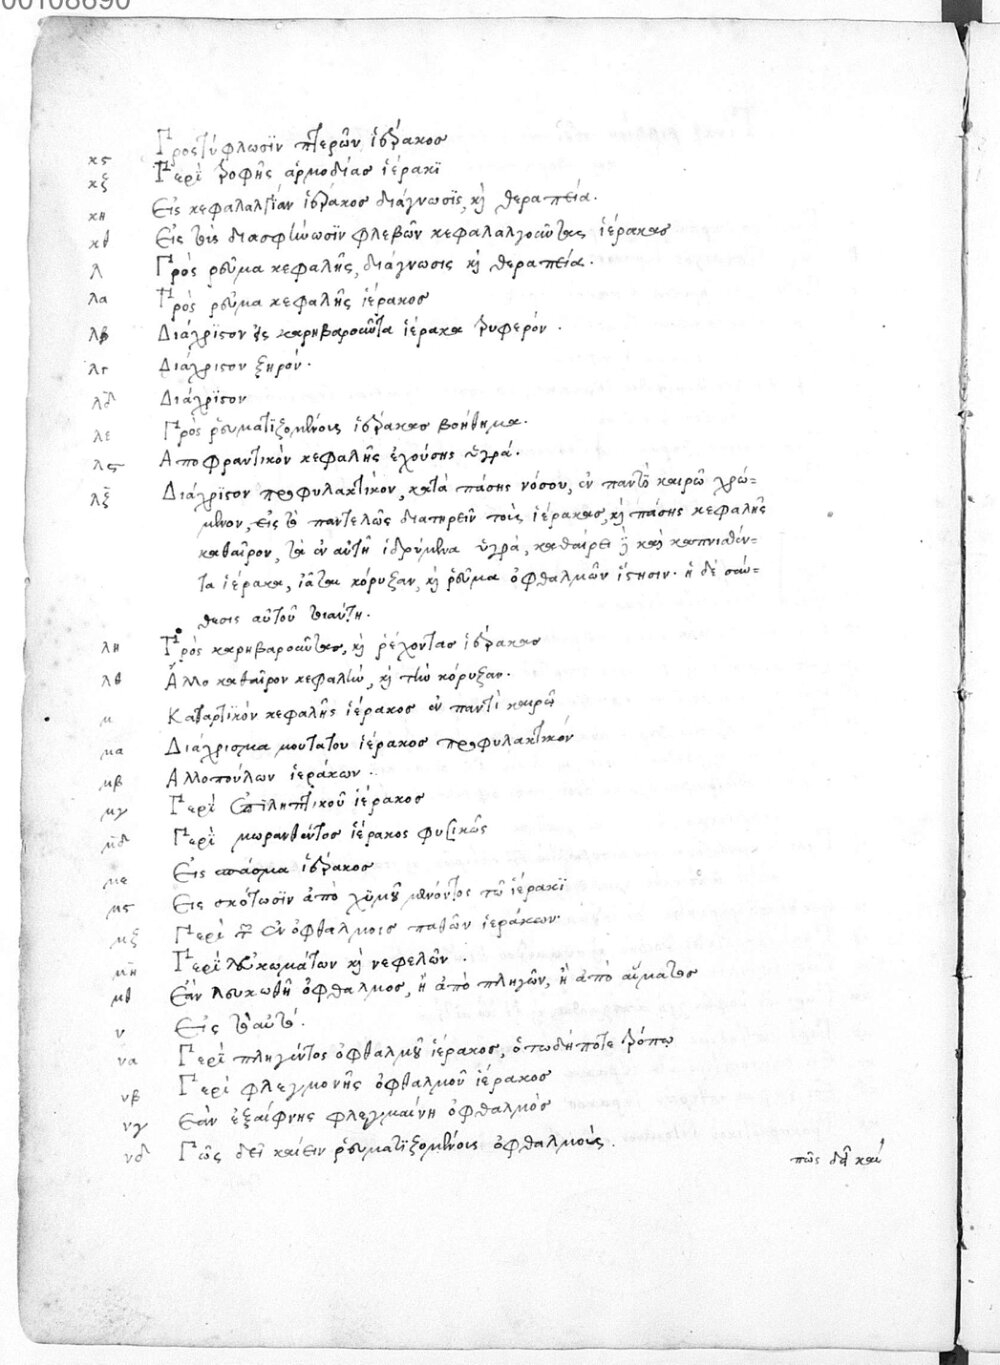 00108690
κϛ Πρὸς τύφλωσϊν πτερῶν ἱέρακος
κζ Περὶ τροφῆς ἁρμοδίας ἱέρακϊ
κη Εἰς κεφαλαλγίαν ἱέρακος διάγνωσϊς, κὴ θεραπεία.
κθ Εἰς τὴν διασφήνωσϊν φλεβῶν κεφαλαλγοῦντας ἱέρακας
λ Πρὸς ρεῦμα κεφαλῆς, διάγνωσις κὴ θεραπεία.
λα Πρὸς ρεῦμα κεφαλῆς ἱέρακος
λβ Διάχρϊστον εἰς καρηβαροῦντα ἱέρακα τρυφερόν.
λγ Διάχριστον ξηρόν.
λδ Διάχρϊστον
λε Πρὸς ῥευματϊζομένους ἱέρακας βοήθημα.
λϛ Αποφραντικὸν κεφαλῆς ἐχούσης ὑγρά.
λζ Διάχρϊστον προφυλακτικὸν, κατὰ πάσης νόσου, ἐν παντὶ καιρῶ χρώ-
μενον, εἰς τὸ παντελῶς διατηρεῖν τοὺς ἱέρακας, κὴ πάσης κεφαλῆς
καθαῖρον, τὰ ἐν αὐτῆ ἱδρύμενα ὑγρὰ, καθαίρει καὶ καπνιαθέν-
τα ἱέρακα, ἰᾶται κόρυζαν, κὴ ῥεῦμα ὀφθαλμῶν ἵστησιν. ἡ δὲ σύν-
θεσις αὐτοῦ τοιαύτη.
λη Πρὸς καρηβαροῦντας, κὴ ῥέχοντας ἱέρακας
λθ Ἄλλο καθαῖρον κεφαλὴν, κὴ τὴν κόρυζαν.
μ Καταρτϊκὸν κεφαλῆς ἱέρακος ἐν παντὶ καιρῶ
μα Διάχρισμα μουτάτου ἱέρακος προφυλακτικόν
μβ Αλλοπούλων ἱεράκων.
μγ Περὶ ἐπιληπτικοῦ ἱέρακος
μδ Περὶ μωρανθέντος ἱέρακος φυσικῶς
με Εἰς σπάσμα ἱέρακος
μϛ Εἰς σκότωσϊν ἀπὸ χϋμοῦ μένοντος τῶ ἱέρακϊ
μζ Περὶ τῶν ἐν ὀφθαλμοις παθῶν ἱεράκων.
μη Περὶ λευκωμάτων κὴ νεφελῶν.
μθ Εὰν λευκωθῆ ὀφθαλμος, ἢ ἀπὸ πληγῶν, ἢ ἀπὸ αἵματος
ν Εἰς τὸ αὐτό.
να Περὶ πληγέντος ὀφθαλμοῦ ἱέρακος, ὁπωδήποτε τρόπω
νβ Περὶ φλεγμονῆς ὀφθαλμοῦ ἱέρακος
νγ Εὰν ἐξαίφνης φλεγμαίνη ὀφθαλμὸς
νδ Πῶς δεῖ καίειν ῥευματϊζομένους ὀφθαλμοὺς.
πῶς δεῖ καί